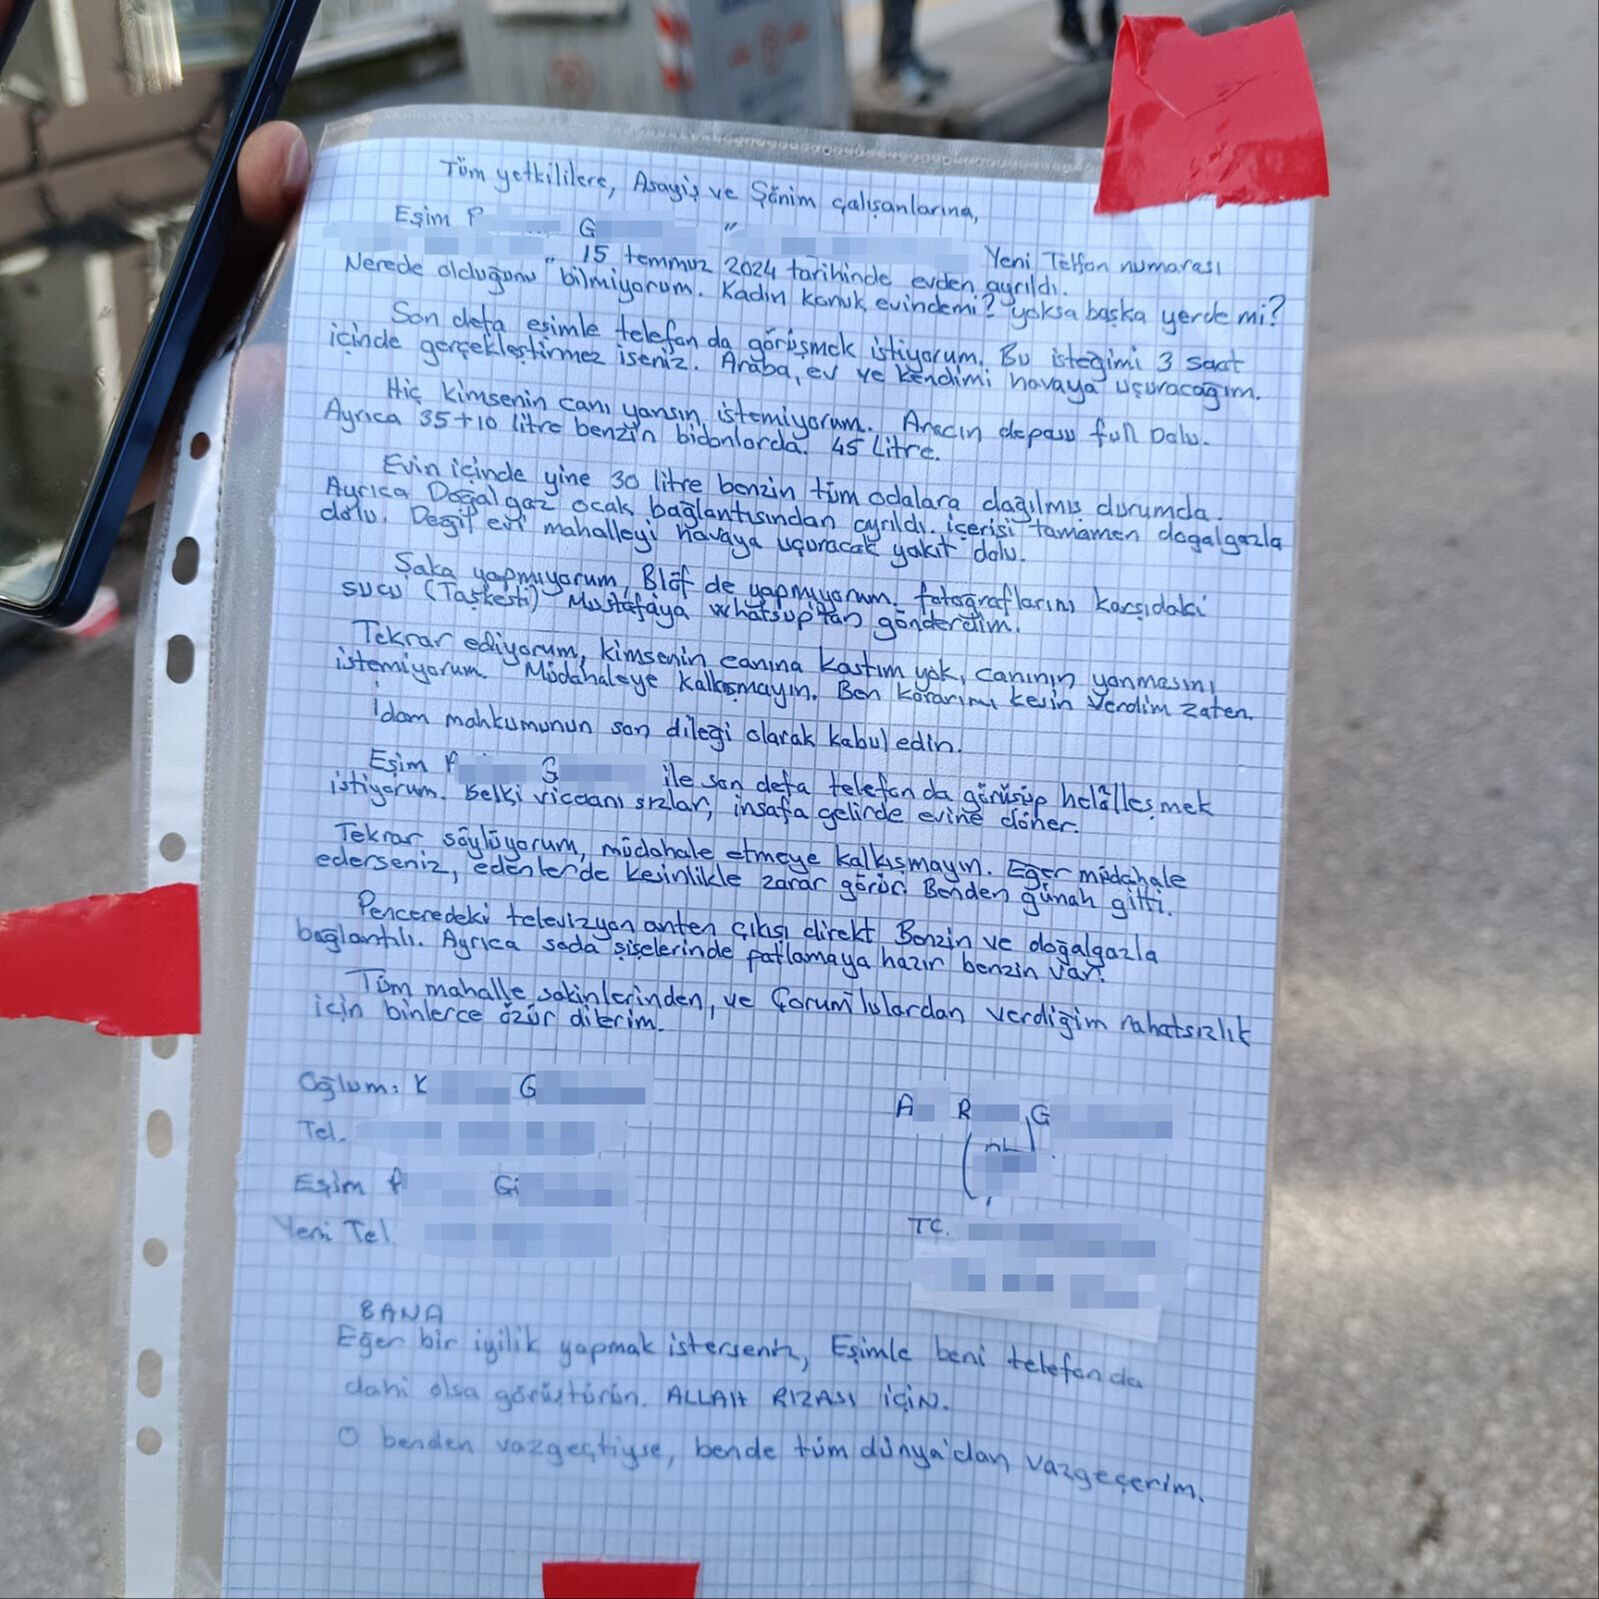 Tüm yetkililere, Asayiş ve Şönim çalışanlarına,
Eşim P G "
Yeni Telfon numarası
" 15 temmuz 2024 tarihinde evden ayrıldı.
Nerede olduğunu bilmiyorum. Kadın konuk evindemi? yoksa başka yerde mi?
Son defa eşimle telefon da görüşmek istiyorum. Bu isteğimi 3 saat
içinde gerçekleştirmez iseniz. Araba, ev ve kendimi havaya uçuracağım.
Hiç kimsenin canı yansın istemiyorum. Aracın deposu full Dolu.
Ayrıca 35+10 litre benzin bidonlarda. 45 Litre.
Evin içinde yine 30 litre benzin tüm odalara dağılmış durumda.
Ayrıca Doğal gaz ocak bağlantısından ayrıldı. içerisi tamamen dogalgazla
dolu. Değil evi mahalleyi havaya uçuracak yakıt dolu.
Şaka yapmıyorum, Blöf de yapmıyorum. fotoğraflarını karşıdaki
sucu (Taşkesti) Mustafaya whatsup'tan gönderdim.
Tekrar ediyorum, kimsenin canına kastım yok, canının yanmasını
istemiyorum. Müdahaleye kalkışmayın. Ben kararımı kesin verdim zaten.
İdam mahkumunun son dileği olarak kabul edin.
Eşim P G ile son defa telefon da görüşüp helâlleşmek
istiyorum. Belki vicdanı sızlar, insafa gelirde evine döner.
Tekrar söylüyorum, müdahale etmeye kalkışmayın. Eğer müdahale
ederseniz, edenlerde kesinlikle zarar görür. Benden günah gitti.
Penceredeki televizyon anten çıkışı direkt Benzin ve doğalgazla
bağlantılı. Ayrıca soda şişelerinde patlamaya hazır benzin var.
Tüm mahalle sakinlerinden, ve Çorum'lulardan verdiğim rahatsızlık
için binlerce özür dilerim.
Oğlum: K G
Tel.
Eşim P Gü
Yeni Tel
A R G
TC.
BANA
Eğer bir iyilik yapmak isterseniz, Eşimle beni telefon da
dahi olsa görüştürün. ALLAH RIZASI İÇİN.
O benden vazgeçtiyse, bende tüm dünya'dan vazgeçerim.